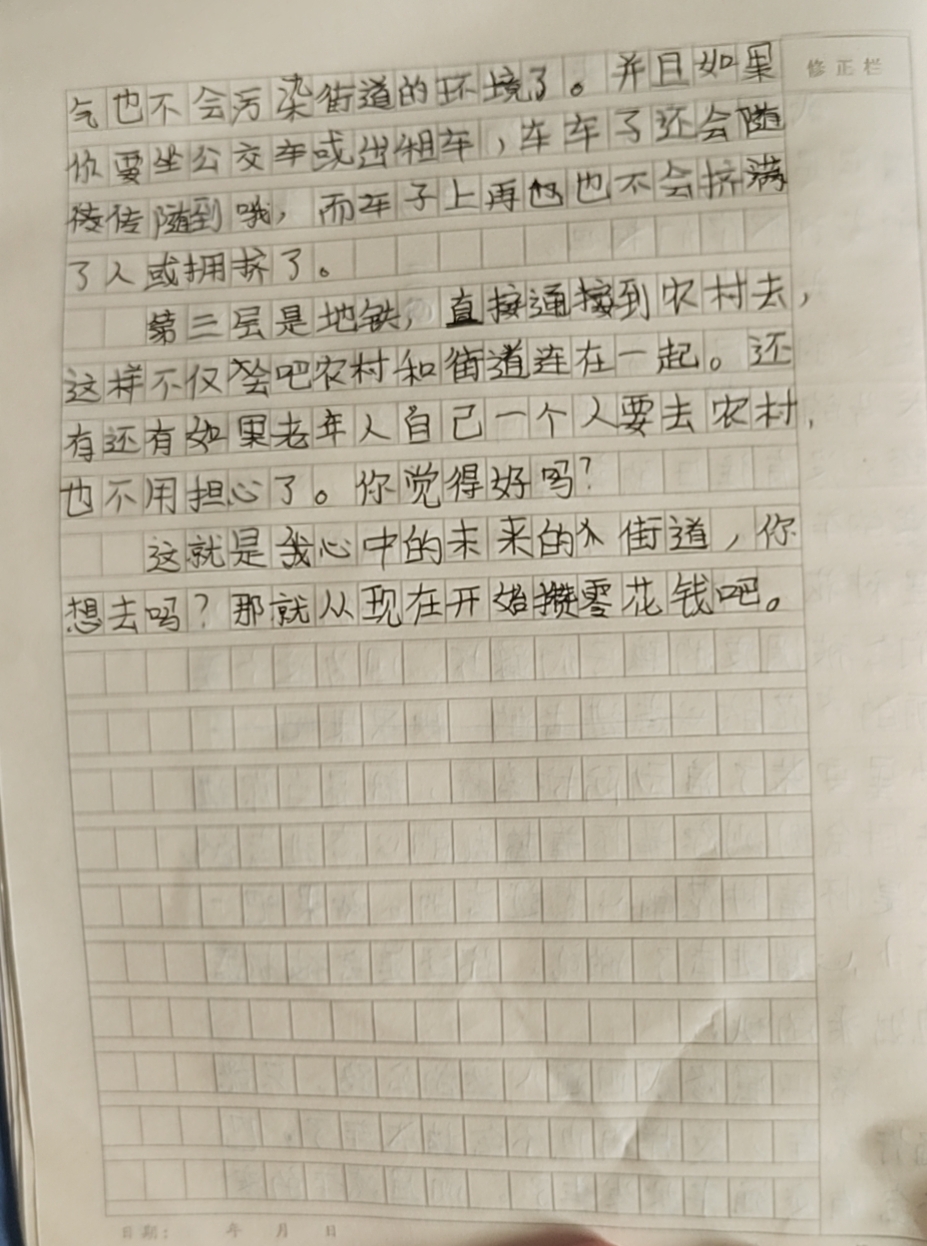 修正栏
气也不会污染街道的环境了。并且如果
你要坐公交车或出租车,车车了还会随
传传随到哦,而车子上再也也不会挤满
了人或拥挤了。
第三层是地铁,直接通接到农村去,
这样不仅会吧农村和街道连在一起。还
有还有如果老年人自己一个人要去农村,
也不用担心了。你觉得好吗?
这就是我心中的未来的街道,你
想去吗?那就从现在开始攒零花钱吧。
日期: 年 月 日